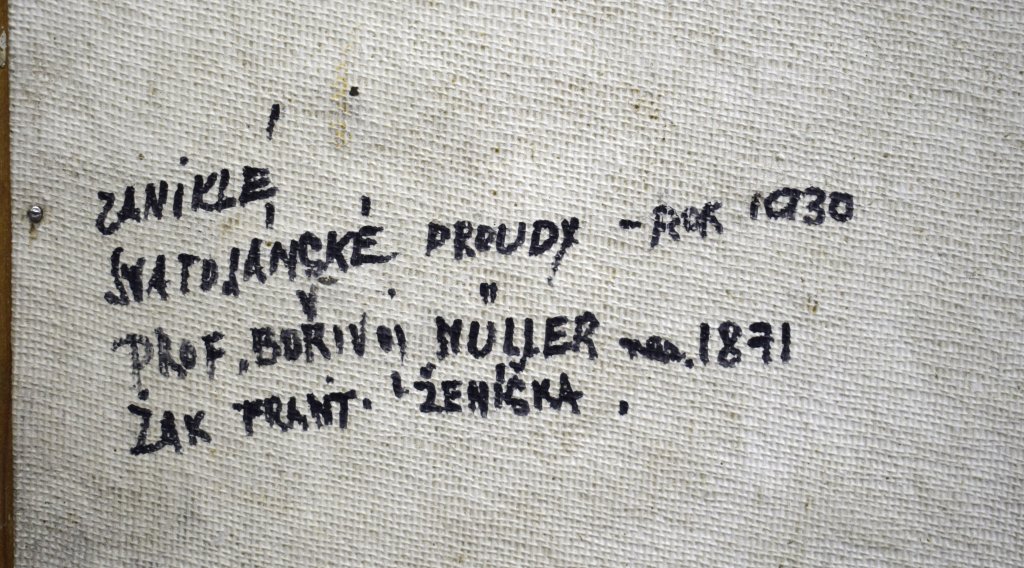 ZANIKLÉ
SVATOJÁNSKÉ PROUDY - ROK 1930
PROF. BOŘIVOJ MÜLLER nar. 1871
ŽÁK FRANT. ŽENÍŠKA.